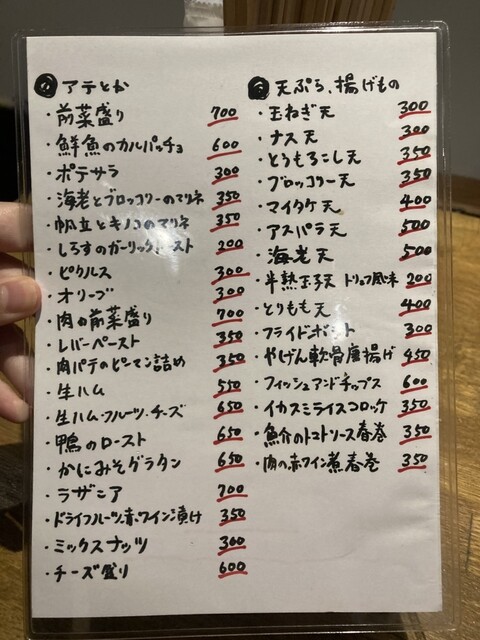 アテとか
・前菜盛り 700
・鮮魚のカルパッチョ 600
・ポテサラ 300
・海老とブロッコリーのマリネ 350
・帆立とキノコのマリネ 350
・しらすのガーリックトースト 200
・ピクルス 300
・オリーブ 300
・肉の前菜盛り 700
・レバーペースト 350
・肉パテのピーマン詰め 350
・生ハム 550
・生ハム・フルーツ・チーズ 650
・鴨のロースト 650
・かにみそグラタン 650
・ラザニア 700
・ドライフルーツ赤ワイン漬け 350
・ミックスナッツ 300
・チーズ盛り 600
天ぷら、揚げもの
・玉ねぎ天 300
・ナス天 300
・とうもろこし天 350
・ブロッコリー天 350
・マイタケ天 400
・アスパラ天 500
・海老天 500
・半熟玉子天 トリュフ風味 200
・とりもも天 400
・フライドポテト 300
・やげん軟骨唐揚げ 450
・フィッシュアンドチップス 600
・イカスミライスコロッケ 350
・魚介のトマトソース春巻 350
・肉の赤ワイン煮春巻 350